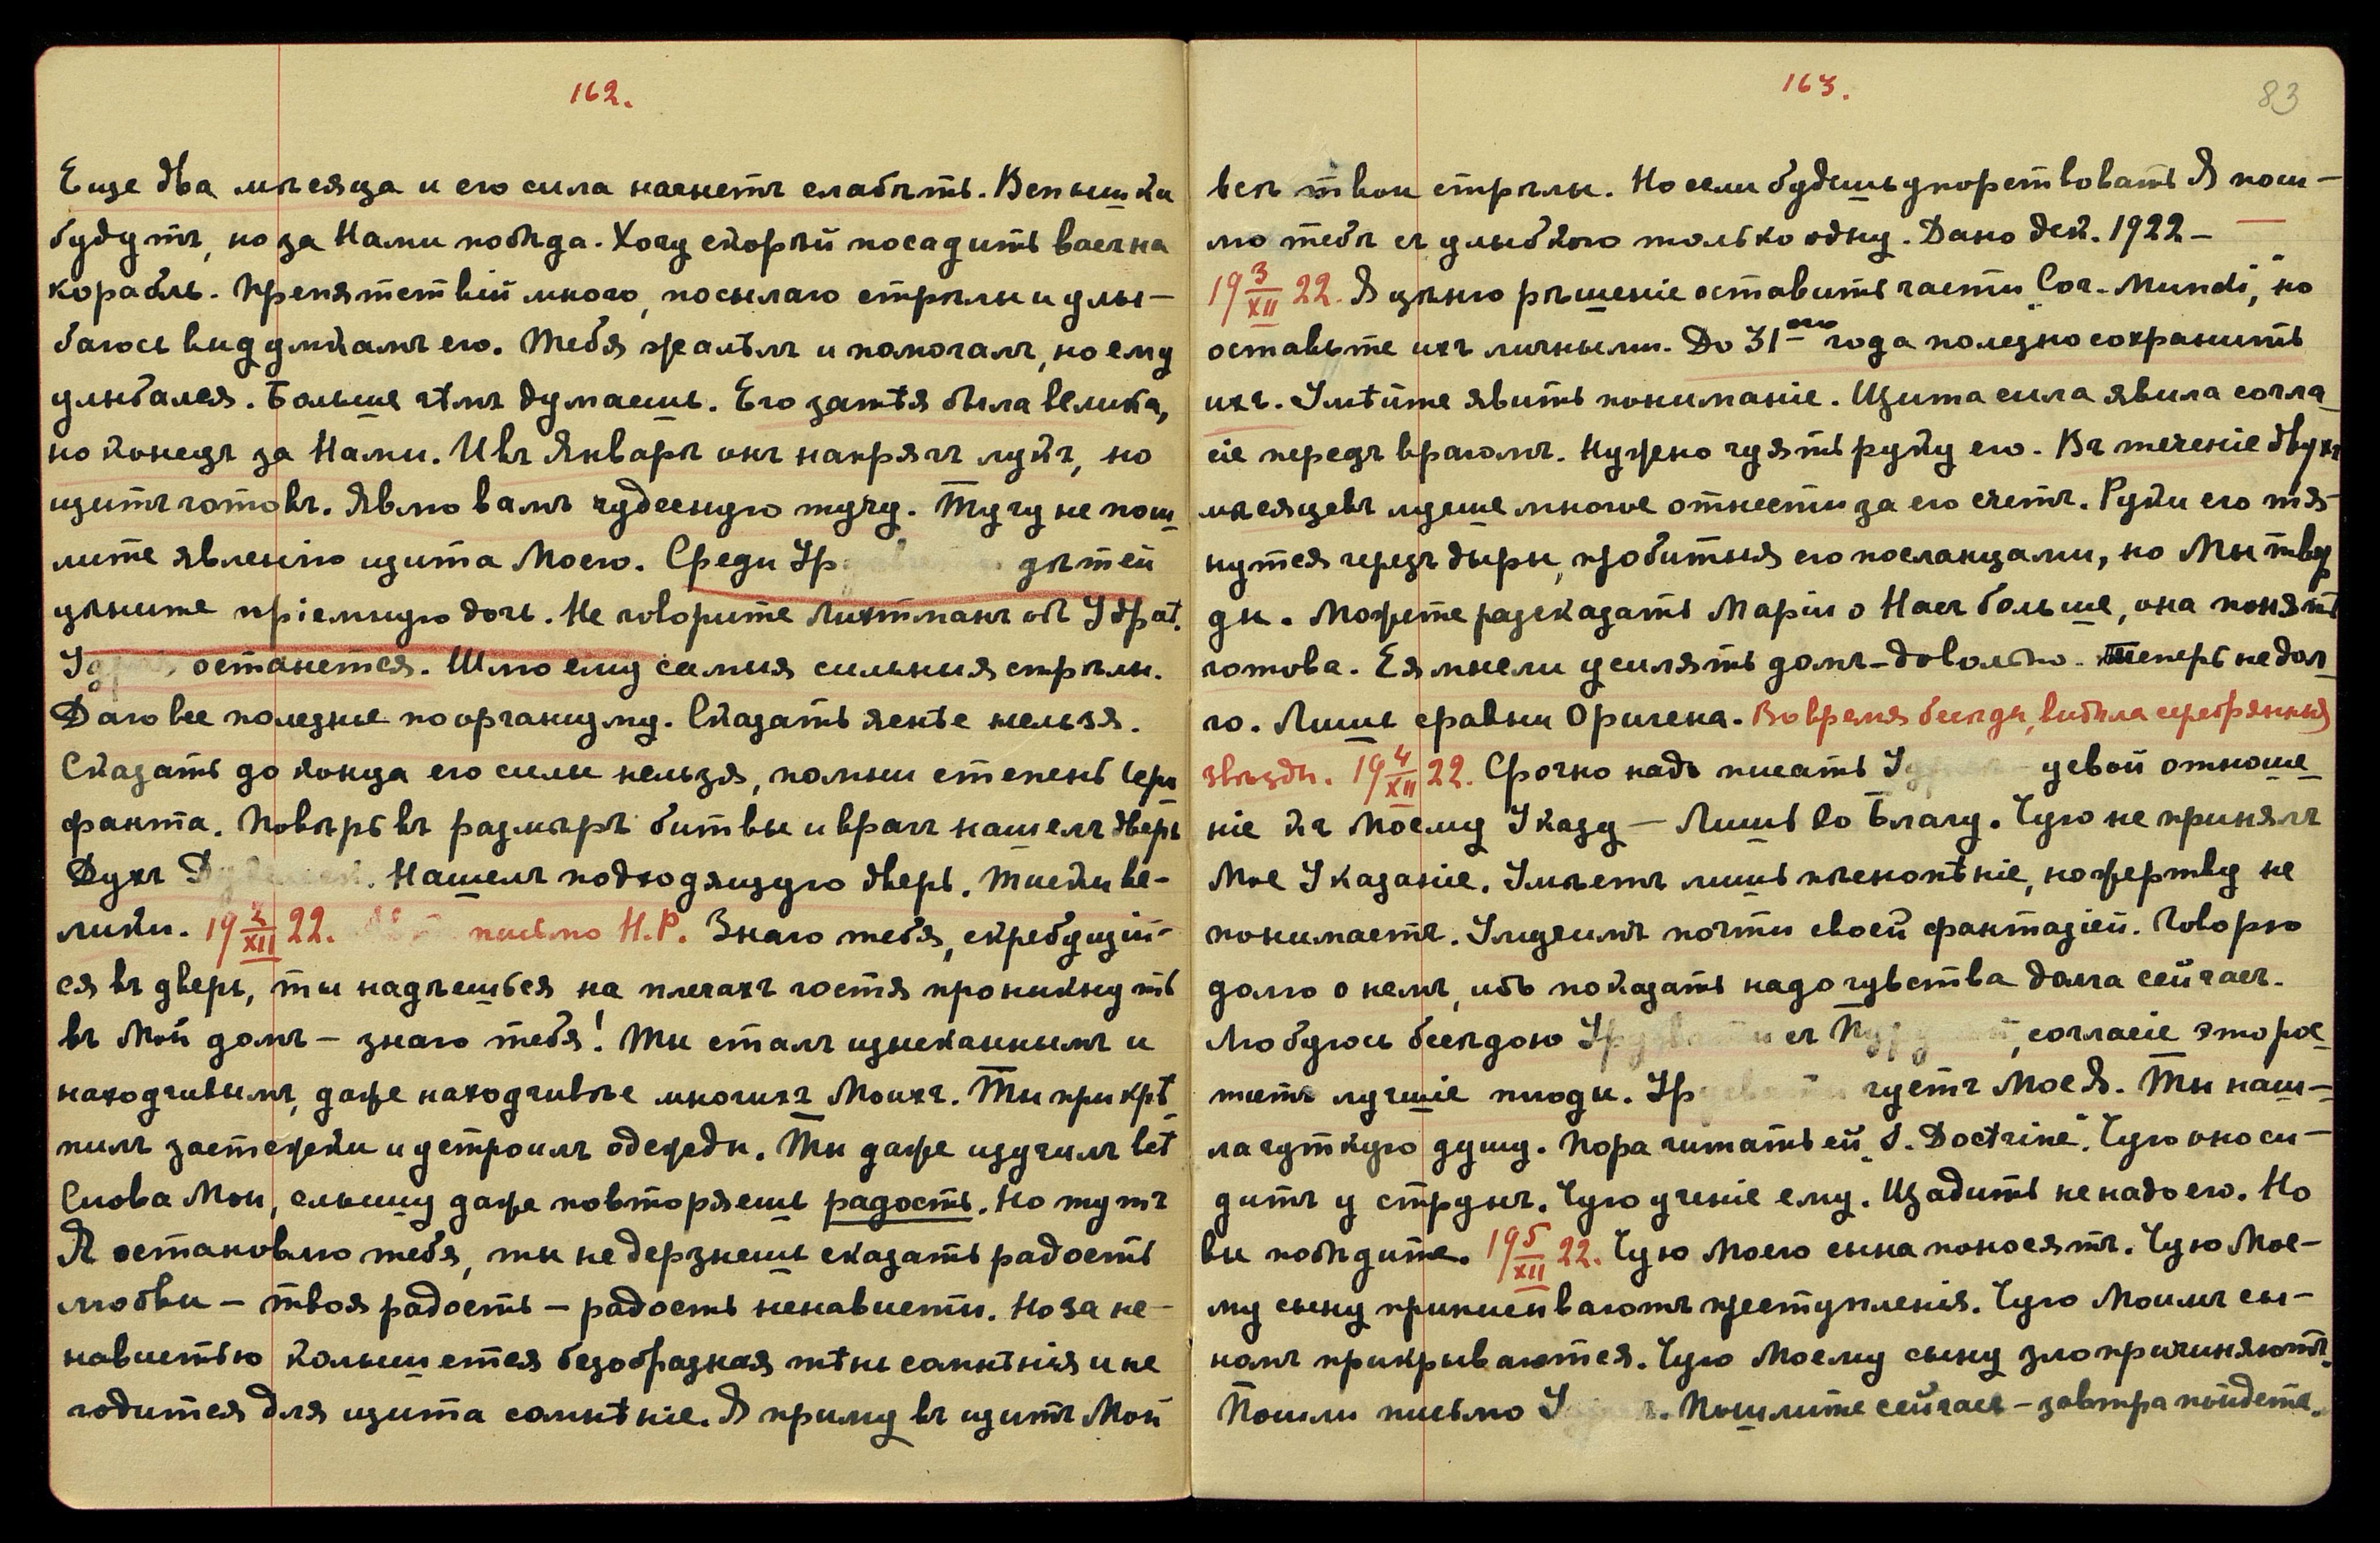 162.
Еще два мѣсяца и его сила начнетъ слабѣть. Вспышки
будутъ, но за Нами побѣда. Хочу скорѣй посадить васъ на
корабль. Препятствій много, посылаю стрѣлы и улы-
баюсь видъ уловкамъ его. Тебя жалѣлъ и помогалъ, но ему
улыбался. Больше чѣмъ думаешь. Его затѣя была велика,
но конецъ за Нами. И въ Январѣ онъ напрягъ лукъ, но
щитъ готовъ. Явлю вамъ чудесную тучу. Тучу не пош
лите явленію щита Моего. Среди Ур дѣтей
цѣните пріемную дочь. Не говорите Лихтманъ объ Удраѣ.
Удрая останется. Шлю ему самыя сильныя стрѣлы.
Даю все полезное по организму. Сказать яснѣе нельзя.
Сказать до конца его силы нельзя, помни степень іеро
фанта. Повѣрь въ размѣръ битвы и врагъ нашелъ дверь
Духъ Нашелъ подходящую дверь. Тиски ве-
лики. 19 2/XII 22. письмо Н.Р. Знаю тебя, скребущій-
ся въ дверь, ты надѣешься на плечахъ гостя проникнуть
въ Мой домъ – знаю тебя! Ты сталъ изысканнымъ и
находчивымъ, даже находчивѣе многихъ Моихъ. Ты прикрѣ
пилъ застежки и устроилъ одежды. Ты даже изучилъ всѣ
Слова Мои, слышу даже повторяешь радость. Но тутъ
Я остановлю тебя, ты не дерзнешь сказать радость
любви – твоя радость – радость ненависти. Но за не-
навистью колышется безобразная тѣнь сомнѣнія и не
годится для щита сомнѣніе. Я приму въ щитъ Мой
163.
83
всѣ твои стрѣлы. Но если будешь упорствовать Я пош-
лю тебѣ съ улыбкою только одну. Дано дек. 1922 –
19 3/XII 22. Я цѣню рѣшеніе оставить части „Cor. Mundi", но
оставьте ихъ личными. До 31-ого года полезно сохранить
ихъ. Умѣйте явить пониманіе. Щита сила явила согла
сіе передъ врагомъ. Нужно чуять руку его. Въ теченіе двухъ
мѣсяцевъ лучше многое отнести за его счетъ. Руки его тя-
нутся черезъ дыры, пробитыя его посланцами, но Мы твер
ды. Можете разсказать Маріи о Насъ больше, она понять
готова. Ея мысли усилять домъ – довольно. Теперь недол
го. Лишь сравни Оригена. Во время бесѣды, видѣла серебрянныя
звѣзды. 19 4/XII 22. Срочно надо писать У цевой отноше
ніе къ Моему Указу – Лишь ко Благу. Чую не принялъ
Мое Указаніе. Умѣетъ лишь пѣснопѣніе, но жертву не
понимаетъ. Умудримъ почти своей фантазіей. Говорю
долго о немъ, ибо показать надо чувства долга сейчасъ.
Любуюсь бесѣдою Ур и съ Пу , согласіе это рос
титъ лучшіе плоды. Ур чуетъ Мое Я. Ты наш-
ла чуткую душу. Пора читать ей „S. Doctrine". Чую она си-
дитъ у струнъ. Чую ученіе ему. Щадить не надо его. Но
вы побѣдите. 19 5/XII 22. Чую Моего сына поносятъ. Чую Мое-
му сыну приписываютъ преступленія. Чую Моимъ сы-
номъ прикрываются. Чую Моему сыну зло причиняютъ.
Пошли письмо У . Пошлите сейчасъ – завтра пойдете.